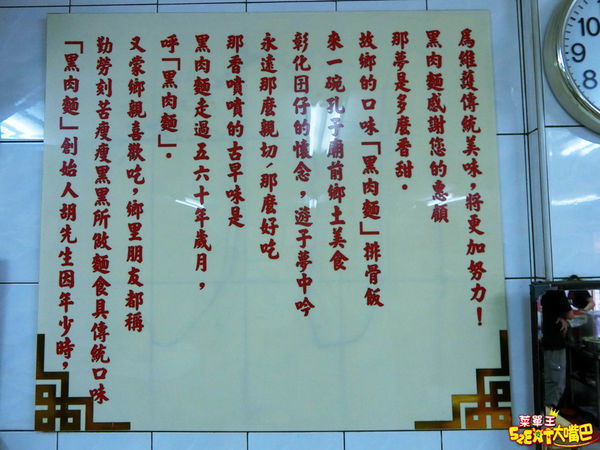 「黑肉麵」創始人胡先生因年少時，
勤勞刻苦瘦瘦黑黑所做麵食具傳統口味
又蒙鄉親喜歡吃，鄉里朋友都稱
呼「黑肉麵」。
黑肉麵走過五六十年歲月，
那香噴噴的古早味是
永遠那麼親切、那麼好吃
彰化囝仔的懷念，遊子夢中吟
來一碗孔子廟前鄉土美食
故鄉的口味「黑肉麵」排骨飯
那夢是多麼香甜。
黑肉麵感謝您的惠顧
為維護傳統美味，將更加努力！
10
9
8
7
菜單王
大嘴巴